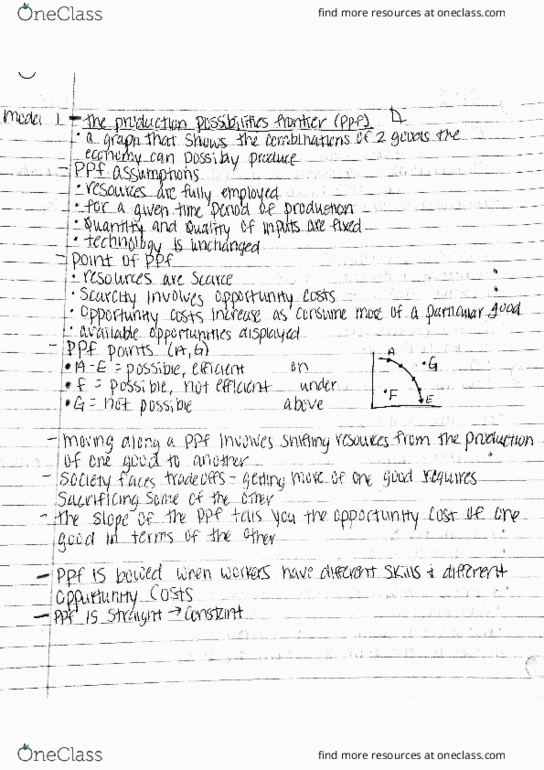 OneClass find more resources at oneclass.com
Model 1 - the production possibilities frontier (PPf)
• a graph that shows the combinations of 2 goods the
economy can possibly produce
- PPf assumptions
• resources are fully employed
• for a given time period of production
• quantity and quality of inputs are fixed
• technology is unchanged
- Point of PPf
• resources are scarce
• scarcity involves opportunity costs
• opportunity costs increase as consume more of a particular good
• available opportunities displayed
- PPf points (A, G)
• A-E = possible, efficient on
• f = possible, not efficient under
• G = not possible above
A
• G
• F
E
- moving along a PPf involves shifting resources from the production
of one good to another
- society faces tradeoffs - getting more of one good requires
sacrificing some of the other
- the slope of the PPf tells you the opportunity cost of one
good in terms of the other
- PPf is bowed when workers have different skills & different
oppurtunity costs
- PPf is straight → constant
OneClass find more resources at oneclass.com